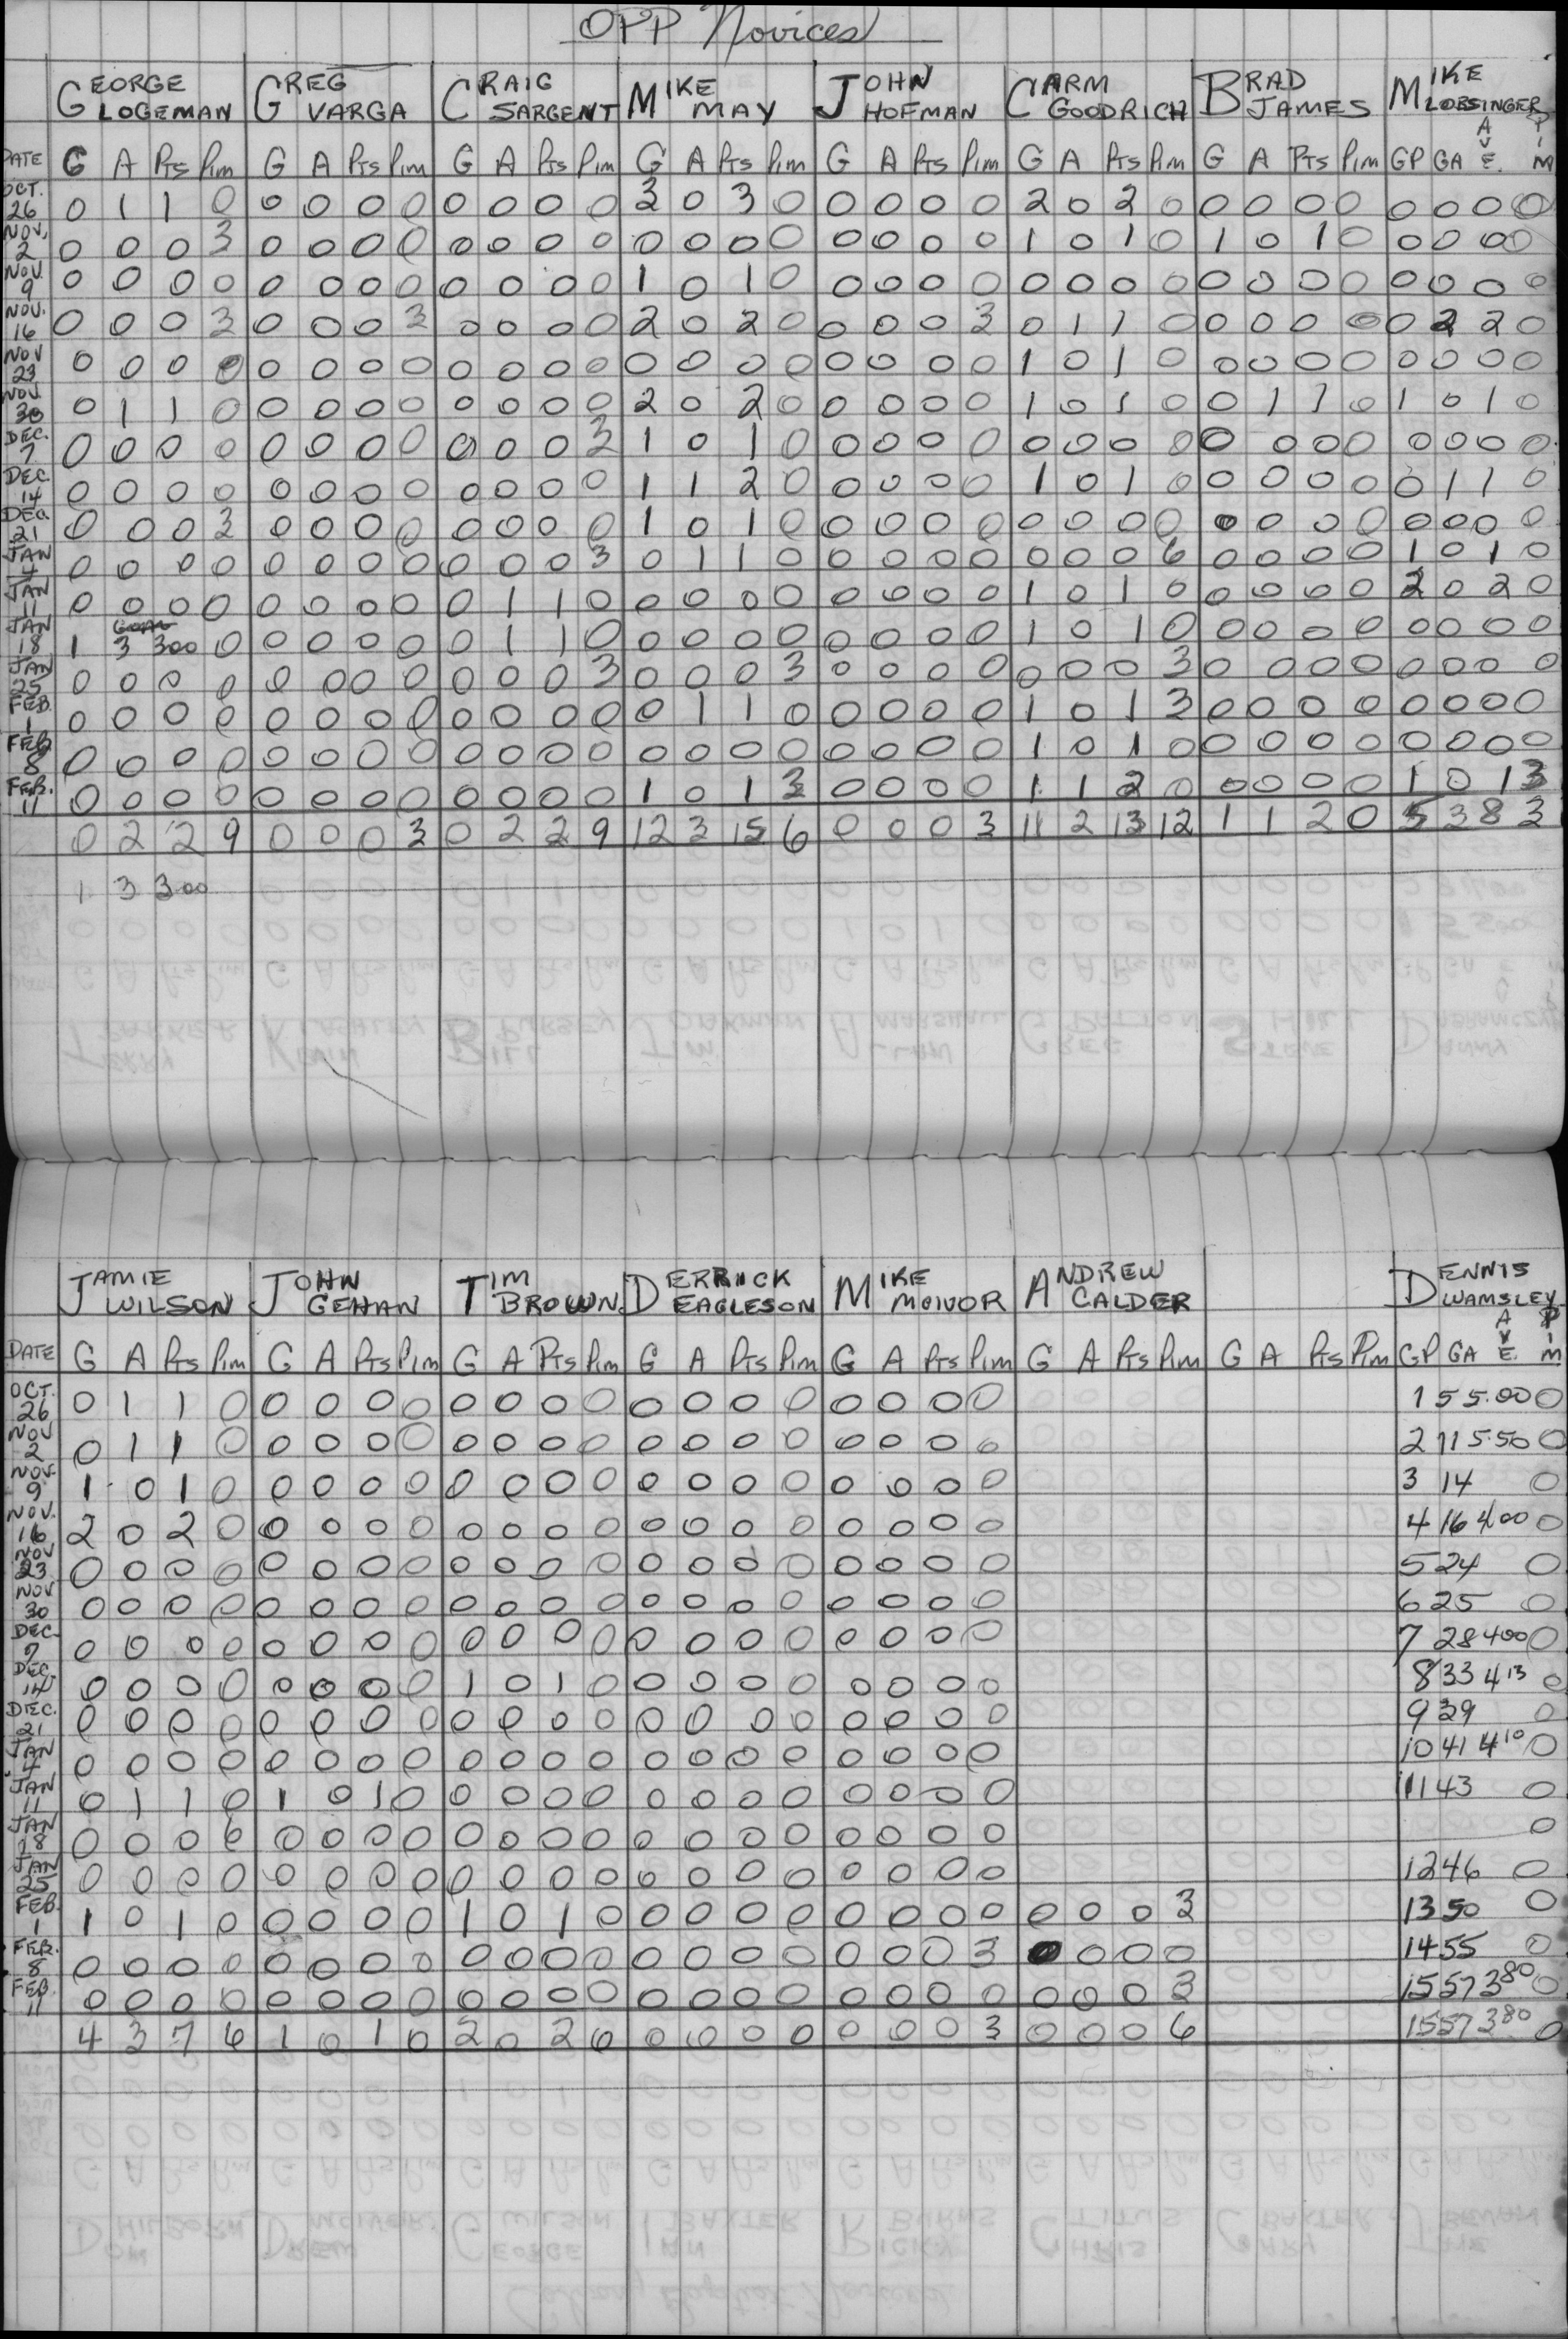 OPP Novices
GEORGE LOGEMAN GREG VARGA CRAIG SARGENT MIKE MAY JOHN HOFMAN CARM GOODRICH BRAD JAMES MIKE LOBSINGER
DATE G A Pts Pim G A Pts Pim G A Pts Pim G A Pts Pim G A Pts Pim G A Pts Pim G A Pts Pim GP GA AVE. PIM
OCT. 26 0 1 1 0 0 0 0 0 0 0 0 0 3 0 3 0 0 0 0 0 2 0 2 0 0 0 0 0 0 0 0 0
NOV. 2 0 0 0 3 0 0 0 0 0 0 0 0 0 0 0 0 0 0 0 0 1 0 1 0 1 0 1 0 0 0 0 0
NOV. 9 0 0 0 0 0 0 0 0 0 0 0 0 1 0 1 0 0 0 0 0 0 0 0 0 0 0 0 0 0 0 0 0
NOV. 16 0 0 0 3 0 0 0 3 0 0 0 0 2 0 2 0 0 0 0 3 0 1 1 0 0 0 0 0 0 2 2 0
NOV 23 0 0 0 0 0 0 0 0 0 0 0 0 0 0 0 0 0 0 0 0 1 0 1 0 0 0 0 0 0 0 0 0
NOV. 30 0 1 1 0 0 0 0 0 0 0 0 0 2 0 2 0 0 0 0 0 1 0 1 0 0 1 1 0 1 0 1 0
DEC. 7 0 0 0 0 0 0 0 0 0 0 0 3 1 0 1 0 0 0 0 0 0 0 0 0 0 0 0 0 0 0 0 0
DEC. 14 0 0 0 0 0 0 0 0 0 0 0 0 1 1 2 0 0 0 0 0 1 0 1 0 0 0 0 0 0 1 1 0
DEC. 21 0 0 0 3 0 0 0 0 0 0 0 0 1 0 1 0 0 0 0 0 0 0 0 0 0 0 0 0 0 0 0 0
JAN 4 0 0 0 0 0 0 0 0 0 0 0 3 0 1 1 0 0 0 0 0 0 0 0 6 0 0 0 0 1 0 1 0
JAN 11 0 0 0 0 0 0 0 0 0 1 1 0 0 0 0 0 0 0 0 0 1 0 1 0 0 0 0 0 2 0 2 0
JAN 18 1 GOAL 3 300 0 0 0 0 0 0 1 1 0 0 0 0 0 0 0 0 0 1 0 1 0 0 0 0 0 0 0 0 0
JAN 25 0 0 0 0 0 0 0 0 0 0 0 3 0 0 0 3 0 0 0 0 0 0 0 3 0 0 0 0 0 0 0 0
FEB. 1 0 0 0 0 0 0 0 0 0 0 0 0 0 1 1 0 0 0 0 0 1 0 1 3 0 0 0 0 0 0 0 0
FEB 8 0 0 0 0 0 0 0 0 0 0 0 0 0 0 0 0 0 0 0 0 1 0 1 0 0 0 0 0 0 0 0 0
FEB. 11 0 0 0 0 0 0 0 0 0 0 0 0 1 0 1 3 0 0 0 0 1 1 2 0 0 0 0 0 1 0 1 3
0 2 2 9 0 0 0 3 0 2 2 9 12 3 15 6 0 0 0 3 11 2 13 12 1 1 2 0 5 3 8 3
1 3 300
JAMIE WILSON JOHN GEHAN TIM BROWN DERRICK EAGLESON MIKE MCIVOR ANDREW CALDER DENNIS WAMSLEY
DATE G A Pts Pim G A Pts Pim G A Pts Pim G A Pts Pim G A Pts Pim G A Pts Pim G A Pts Pim GP GA AVE. PIM
OCT. 26 0 1 1 0 0 0 0 0 0 0 0 0 0 0 0 0 0 0 0 0 1 5 5.00 0
NOV 2 0 1 1 0 0 0 0 0 0 0 0 0 0 0 0 0 0 0 0 0 2 11 5.50 0
NOV. 9 1 0 1 0 0 0 0 0 0 0 0 0 0 0 0 0 0 0 0 0 3 14 0
NOV. 16 2 0 2 0 0 0 0 0 0 0 0 0 0 0 0 0 0 0 0 0 4 16 400 0
NOV 23 0 0 0 0 0 0 0 0 0 0 0 0 0 0 0 0 0 0 0 0 5 24 0
NOV 30 0 0 0 0 0 0 0 0 0 0 0 0 0 0 0 0 0 0 0 0 6 25 0
DEC. 7 0 0 0 0 0 0 0 0 0 0 0 0 0 0 0 0 0 0 0 0 7 28 400 0
DEC. 14 0 0 0 0 0 0 0 0 1 0 1 0 0 0 0 0 0 0 0 0 8 33 413 0
DEC. 21 0 0 0 0 0 0 0 0 0 0 0 0 0 0 0 0 0 0 0 0 9 39 0
JAN 4 0 0 0 0 0 0 0 0 0 0 0 0 0 0 0 0 0 0 0 0 10 41 410 0
JAN 11 0 1 1 0 1 0 1 0 0 0 0 0 0 0 0 0 0 0 0 0 11 43 0
JAN 18 0 0 0 6 0 0 0 0 0 0 0 0 0 0 0 0 0 0 0 0 0
JAN 25 0 0 0 0 0 0 0 0 0 0 0 0 0 0 0 0 0 0 0 0 12 46 0
FEB. 1 1 0 1 0 0 0 0 0 1 0 1 0 0 0 0 0 0 0 0 0 0 0 0 3 13 50 0
FEB. 8 0 0 0 0 0 0 0 0 0 0 0 0 0 0 0 0 0 0 0 3 0 0 0 0 14 55 0
FEB. 11 0 0 0 0 0 0 0 0 0 0 0 0 0 0 0 0 0 0 0 0 0 0 0 3 15 57 380 0
4 3 7 6 1 0 1 0 2 0 2 0 0 0 0 0 0 0 0 3 0 0 0 6 15 57 380 0